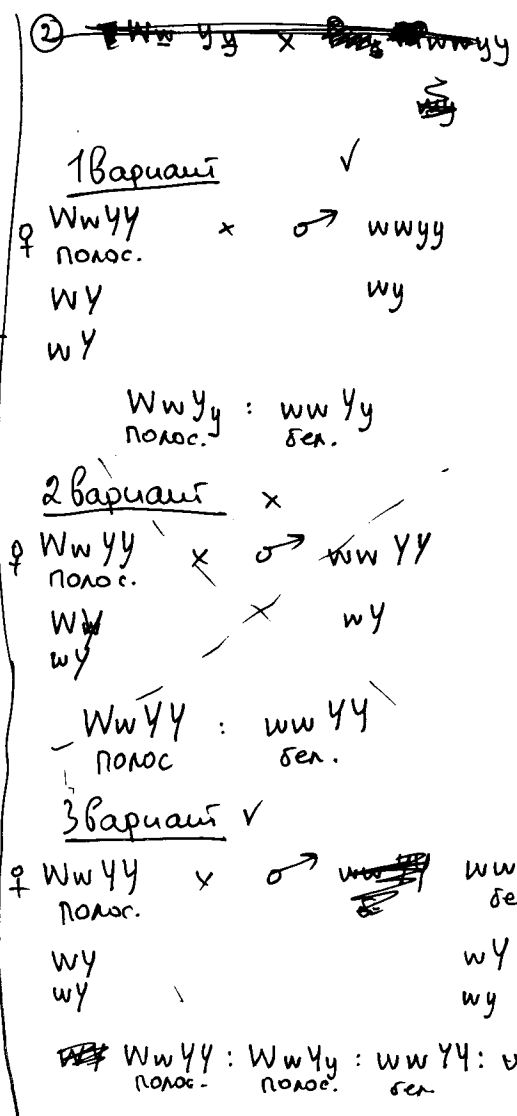 ② Ww Yy x wwyy
1 вариант ✓
♀ WwYY x ♂ wwyy
полос.
WY wy
wY
WwYy : wwYy
полос. бел.
2 вариант x
♀ WwYY x ♂ wwYY
полос.
WY wY
wY
WwYY : wwYY
полос бел.
3 вариант ✓
♀ WwYY x ♂ ww
полос.
WY wY
wY wy
WwYY : WwYy : wwYY :
полос. полос. бел